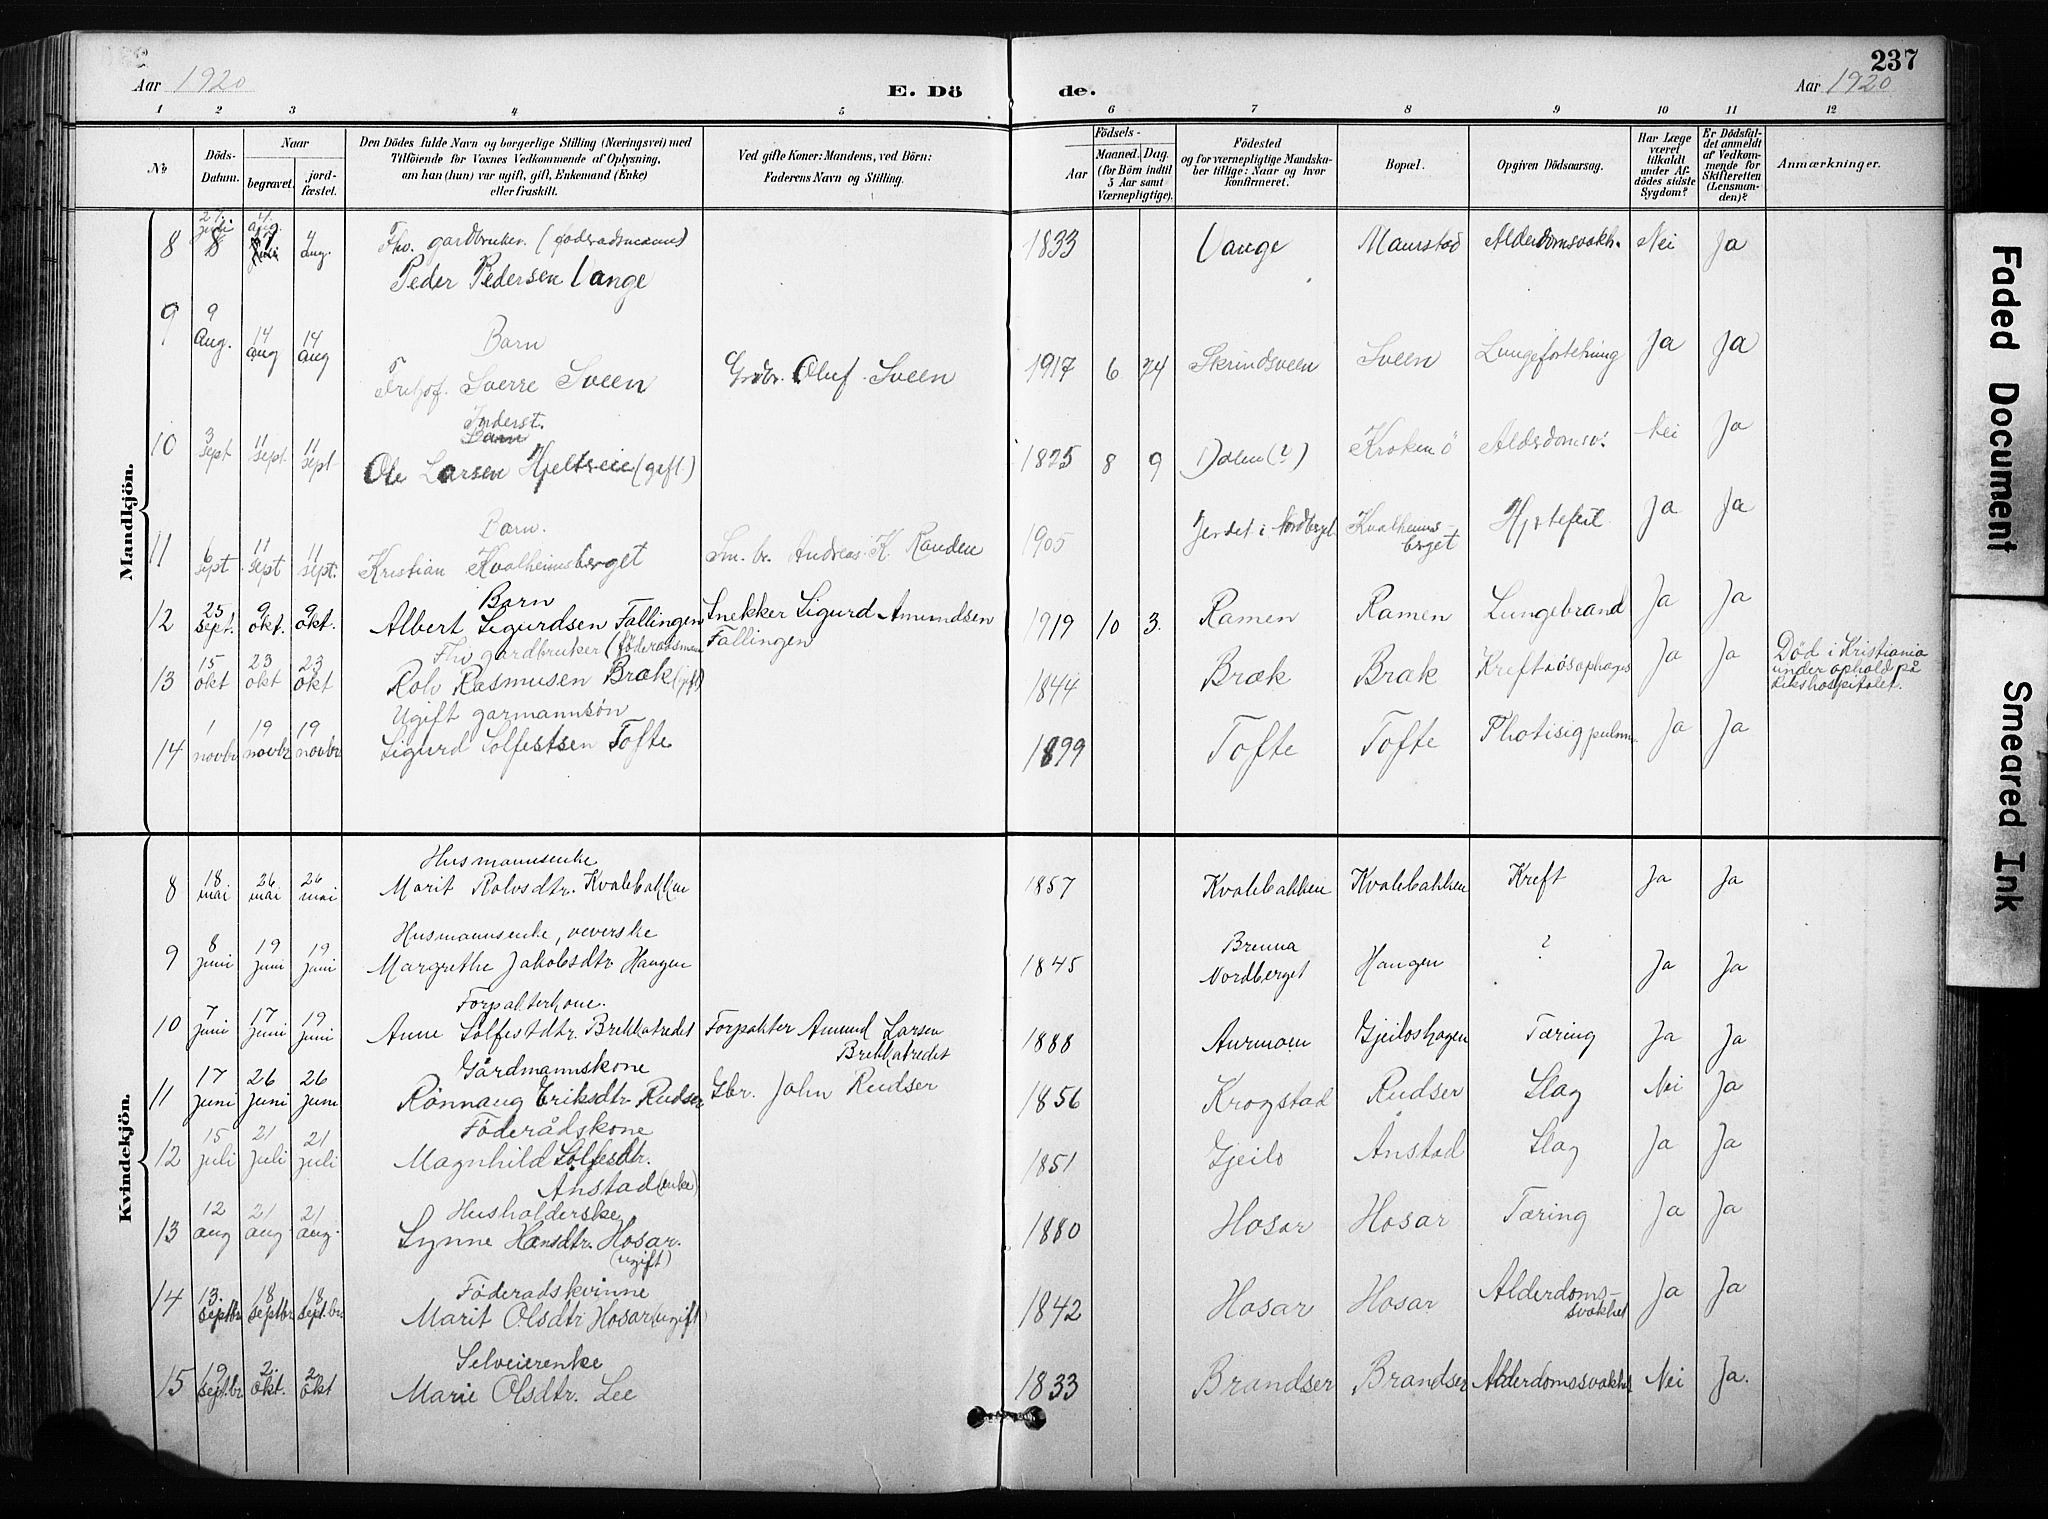 237
Aar 1920
E. Dö de.
Aar 1920
1 2 3 4 5 6 7 8 9 10 11 12
No.
Döds-Datum.
Naar
begravet.
jord-fæstet.
Den Dödes fulde Navn og borgerlige Stilling (Næringsvei) med
Tilföiende for Voxnes Vedkommende af Oplysning,
om han (hun) var ugift, gift, Enkemand (Enke)
eller fraskilt.
Ved gifte Koner: Mandens, ved Börn:
Faderens Navn og Stilling.
Födsels-
Aar
Maaned. Dag.
(for Börn indtil
5 Aar samt
Værnepligtige).
Födested
og for værnepligtige Mandska-
ber tillige: Naar og hvor
konfirmeret.
Bopæl.
Opgiven Dödsaarsag.
Har Læge
været
tilkaldt
under Af-
dödes sidste
Sygdom?
Er Dödsfal-
det anmeldt
af Vedkom-
mende for
Skifteretten
(Lensman-
den)?
Anmærkninger.
Mandkjön.
8 27 juli 4 aug. 4 aug. Fhv. gardbruker (föderadsmann)
Peder Pedersen Vange 1833 Vange Maurstad Alderdomsvakh. Nei Ja
9 9 Aug. 14 aug 14 aug Barn
Frithjof Sverre Sveen Grdbr. Oluf Sveen 1917 6 24 Skrindsveen Sveen Lungefortetning Ja Ja
10 3 sept 11 sept. 11 sept. Inderst. Barn
Ole Larsen Hjeltveie (gift) 1825 8 9 Dalen (?) Kroken ö Alderdomsv. Nei Ja
11 6 sept 11 sept 11 sept. Barn.
Kristian Kvalheimsberget Sm. br. Andreas K. Randen 1905 Jordet i Nordberget Kvalheims-
berget Hjertefeil Ja Ja
12 25 sept. 9 okt. 9 okt. Barn
Albert Sigurdsen Fallingen Snekker Sigurd Amundsen
Fallingen 1919 10 3. Ramen Ramen Lungebrand Ja Ja
13 15 okt 23 okt 23 okt Fhv gardbruker (föderadsmann
Rolv Rasmusen Bræk (gift) 1844 Bræk Bræk Kreft i ösophages Ja Ja Död i Kristiania
under ophold på
Rikshospitalet.
14 1 novbr 19 novbr 19 novbr Ugift garmannsön
Sigurd Solfestsen Tofte 1899 Tofte Tofte Photisig pulmn. Ja Ja
Kvindekjön.
8 18 mai 26 mai 26 mai Husmannsenke
Marit Rolvsdtr. Kvalebakken 1857 Kvalebakken Kvalebakken Kreft Ja Ja
9 8 juni 19 juni 19 juni Husmannsenke, veverske
Margrethe Jakobsdtr Haugen 1845 Brenna
Nordberget Haugen ? Ja Ja
10 7 juni 17 juni 19 juni Forpakterkone.
Anne Solfestdtr. Brekkatredet Forpakter Amund Larsen
Brekkatredet 1888 Aurmoen Gjeiloshagen Tæring Ja Ja
11 17 juni 26 juni 26 juni Gårdmannskone
Rönnaug Eriksdtr. Rudser Gbr. John Rudser 1856 Krogstad Rudser Slag Nei Ja
12 15 juli 21 juli 21 juli Föderådskone
Magnhild Solfesdtr.
Anstad (enke) 1851 Gjeilo Anstad Slag Ja Ja
13 12 aug 21 aug 21 aug. Husholderske
Synne Hansdtr. Hosar.
(ugift) 1880 Hosar Hosar Tæring Ja Ja
14 13 septbr 18 septbr 18 sept.br Föderadskvinne
Marit Olsdtr Hosar (ugift) 1842 Hosar Hosar Alderdoms-
svakhet Ja Ja
15 19 sept.br 2. okt. 2 okt Selveierenke
Marie Olsdtr. Lee 1833 Brandser Brandser Alderdomssvakhet Nei Ja.
Faded Document
Smeared Ink